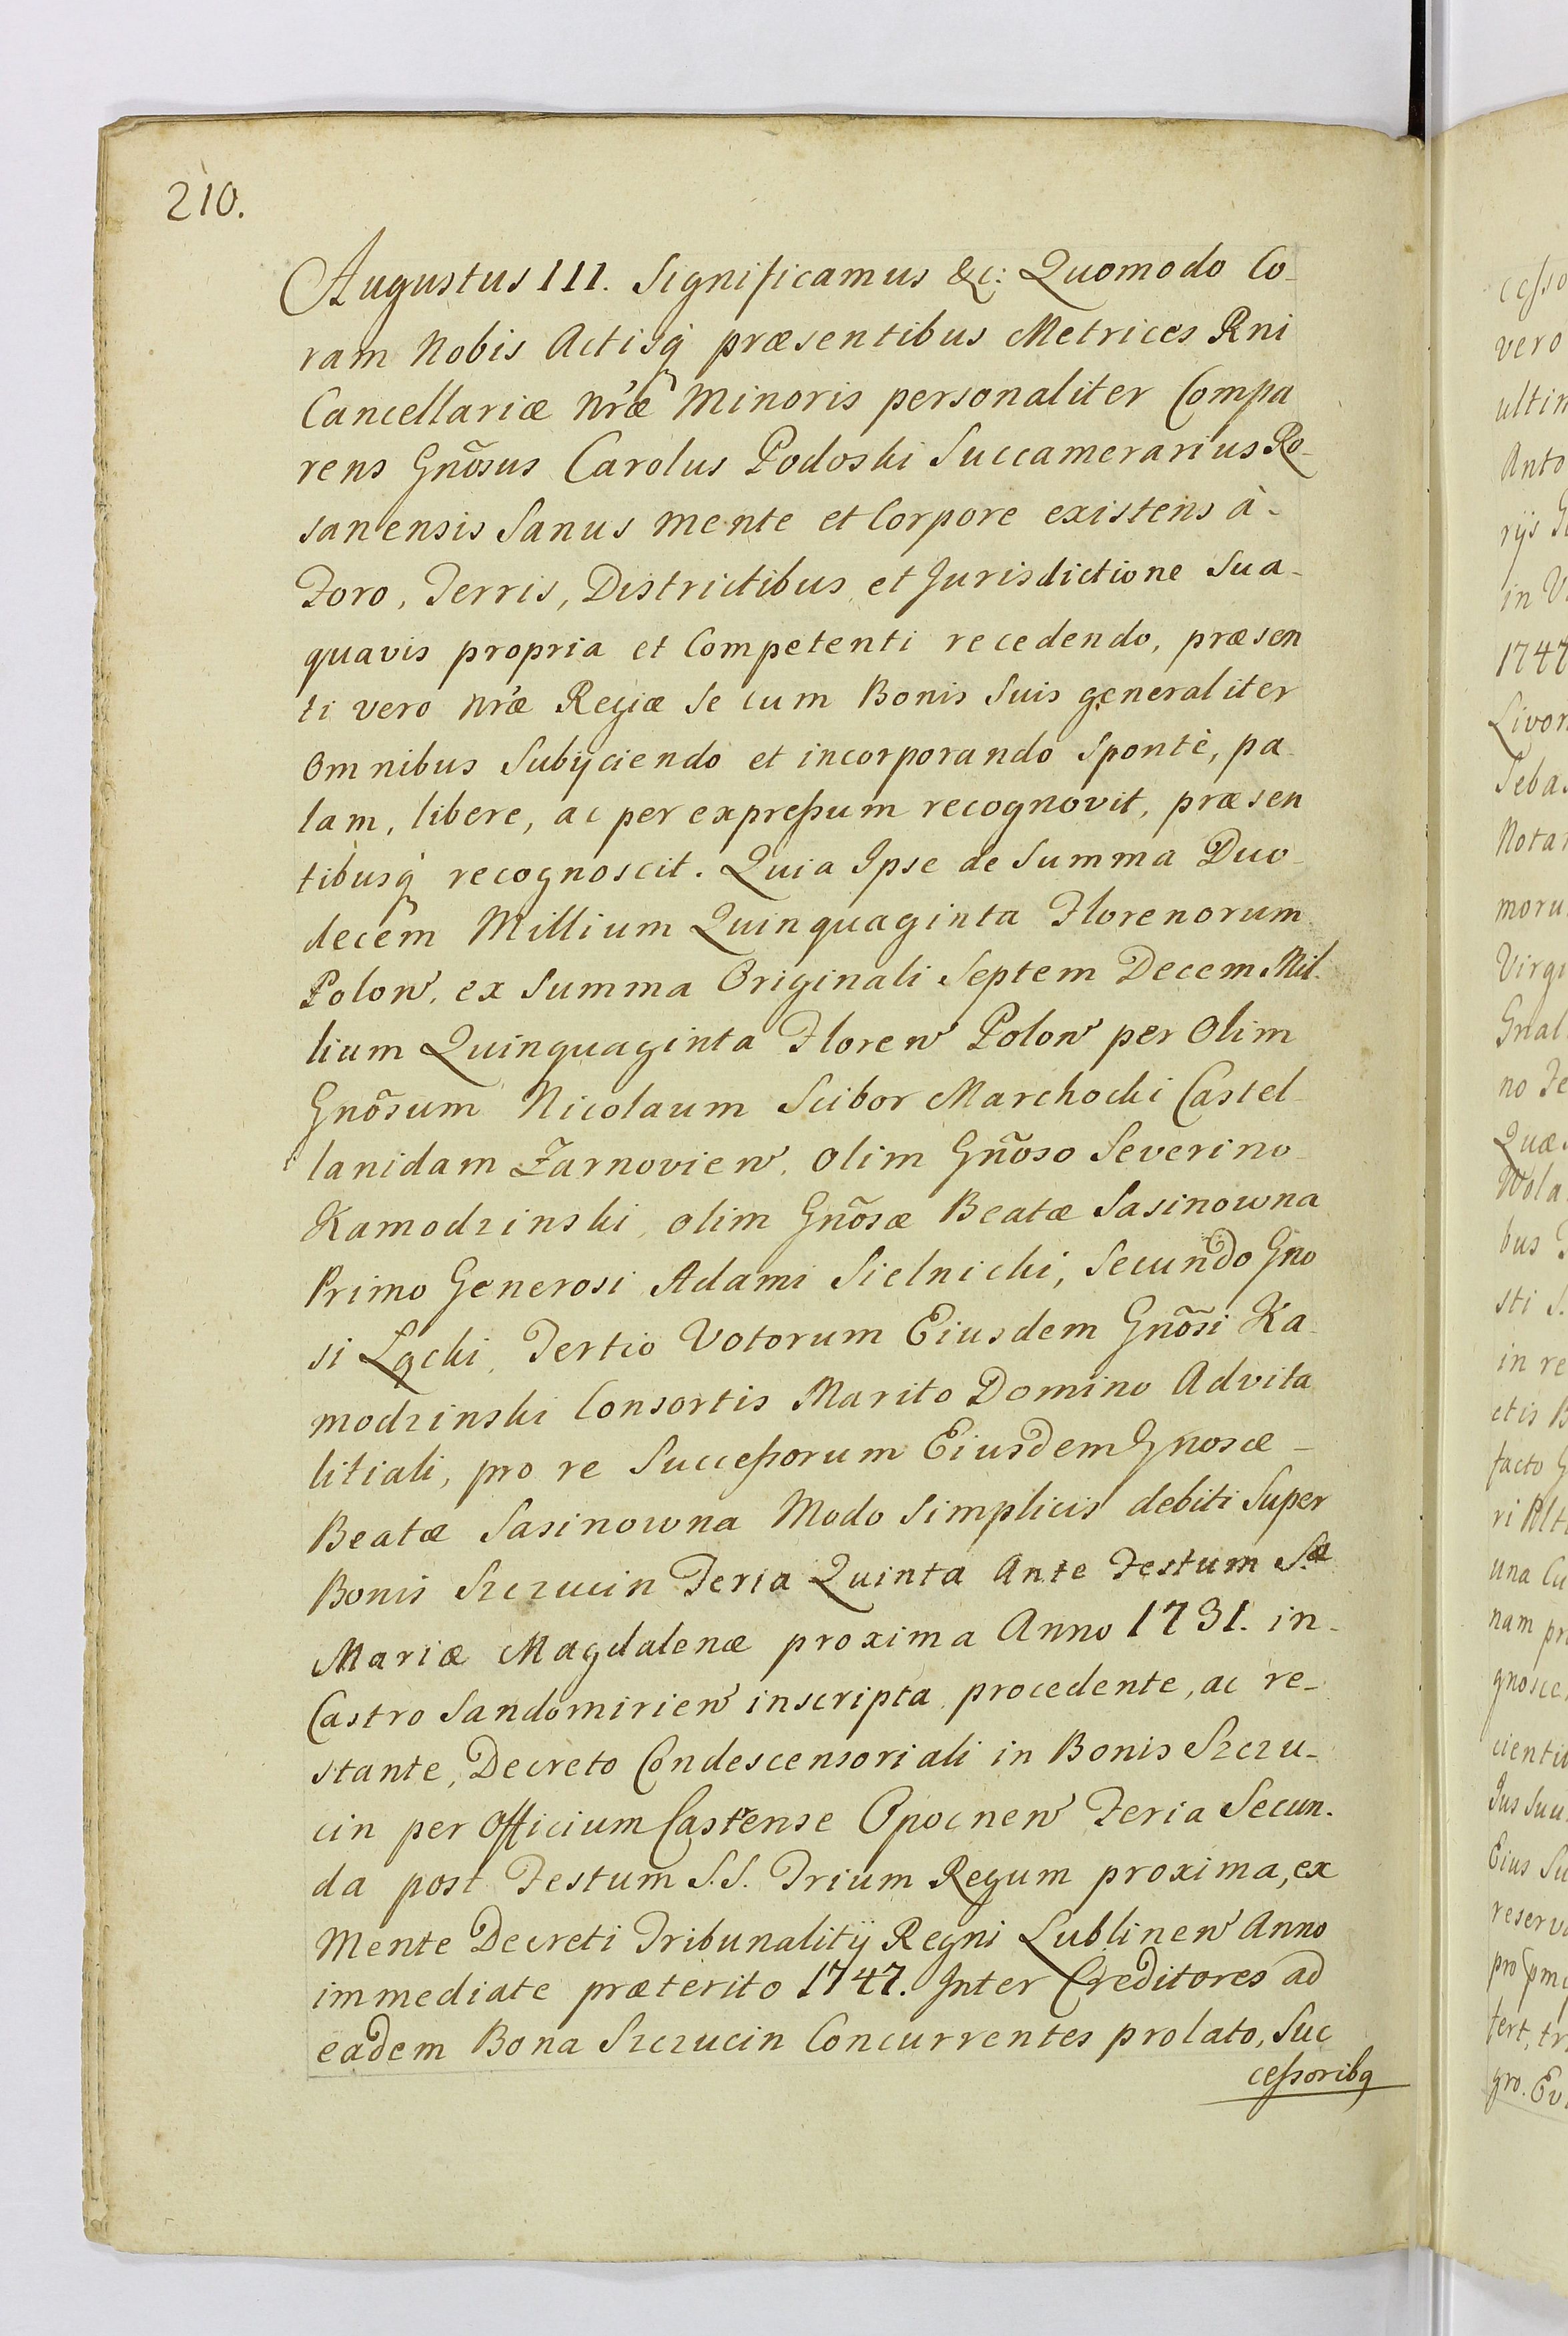 210.
Augustus III. Significamus &c: Quomodo Co-
ram Nobis Actisq præsentibus Metrices Rni
Cancellariæ Nræ Minoris personaliter Compa
rens Gnõsus Carolus Podoski Succamerarius Ro-
sanensis Sanus mente et Corpore existens à-
Foro, Terris, Districtibus et Jurisdictione Sua-
quavis propria et Competenti recedendo, præsen
ti vero Nræ Regiæ Se cum Bonis Suis generaliter
Omnibus Subijciendo et incorporando Spontè, pa
lam, libere, ac per expreßum recognovit, præsen
tibusq recognoscit. Quia Ipse de Summa Duo-
decem Millium Quinquaginta Florenorum
Polon, ex Summa Originali Septem Decem Mil
lium Quinquaginta Floren Polon per Olim
Gnõsum Nicolaum Scibor Marchocki Castel-
lanidam Żarnovien, Olim Gnõso Severino
Kamodzinski, olim Gnõsæ Beatæ Sasinowna
Primo Generosi Adami Sielnicki, Secundo Gno
si Łącki, Tertio Votorum Eiusdem Gnõsi Ka-
modzinski Consortis Marito Domino Advita
litiali, pro re Succeßorum Eiusdem Gnosæ-
Beatæ Sasinowna Modo Simplicis debiti Super
Bonis Szczucin Feria Quinta Ante Festum S.æ
Mariæ Magdalenæ proxima Anno 1731. in-
Castro Sandomirien inscripta procedente, ac re-
stante, Decreto Condescensoriali in Bonis Szczu-
cin per Officium Castrense Opocnen Feria Secun-
da post Festum S.S. Trium Regum proxima, ex
Mente Decreti Tribunalitij Regni Lublinen Anno
immediate præterito 1747. Inter Creditores ad
eadem Bona Szczucin Concurrentes prolato, Suc
ceßoribq
ceßo
vero
ultim
Anto
rijs
in
1747
Livon
Sebas
Notar
moru
Virgi
Gnal
no Fe
Quæ
Wola
bus
sti S.
in re
ctis B
facto G
ri
una Cu
nam pr
gnosce
cienti
Jus Suu
Eius Su
reserv
pro
fert, tr
gro. Ev